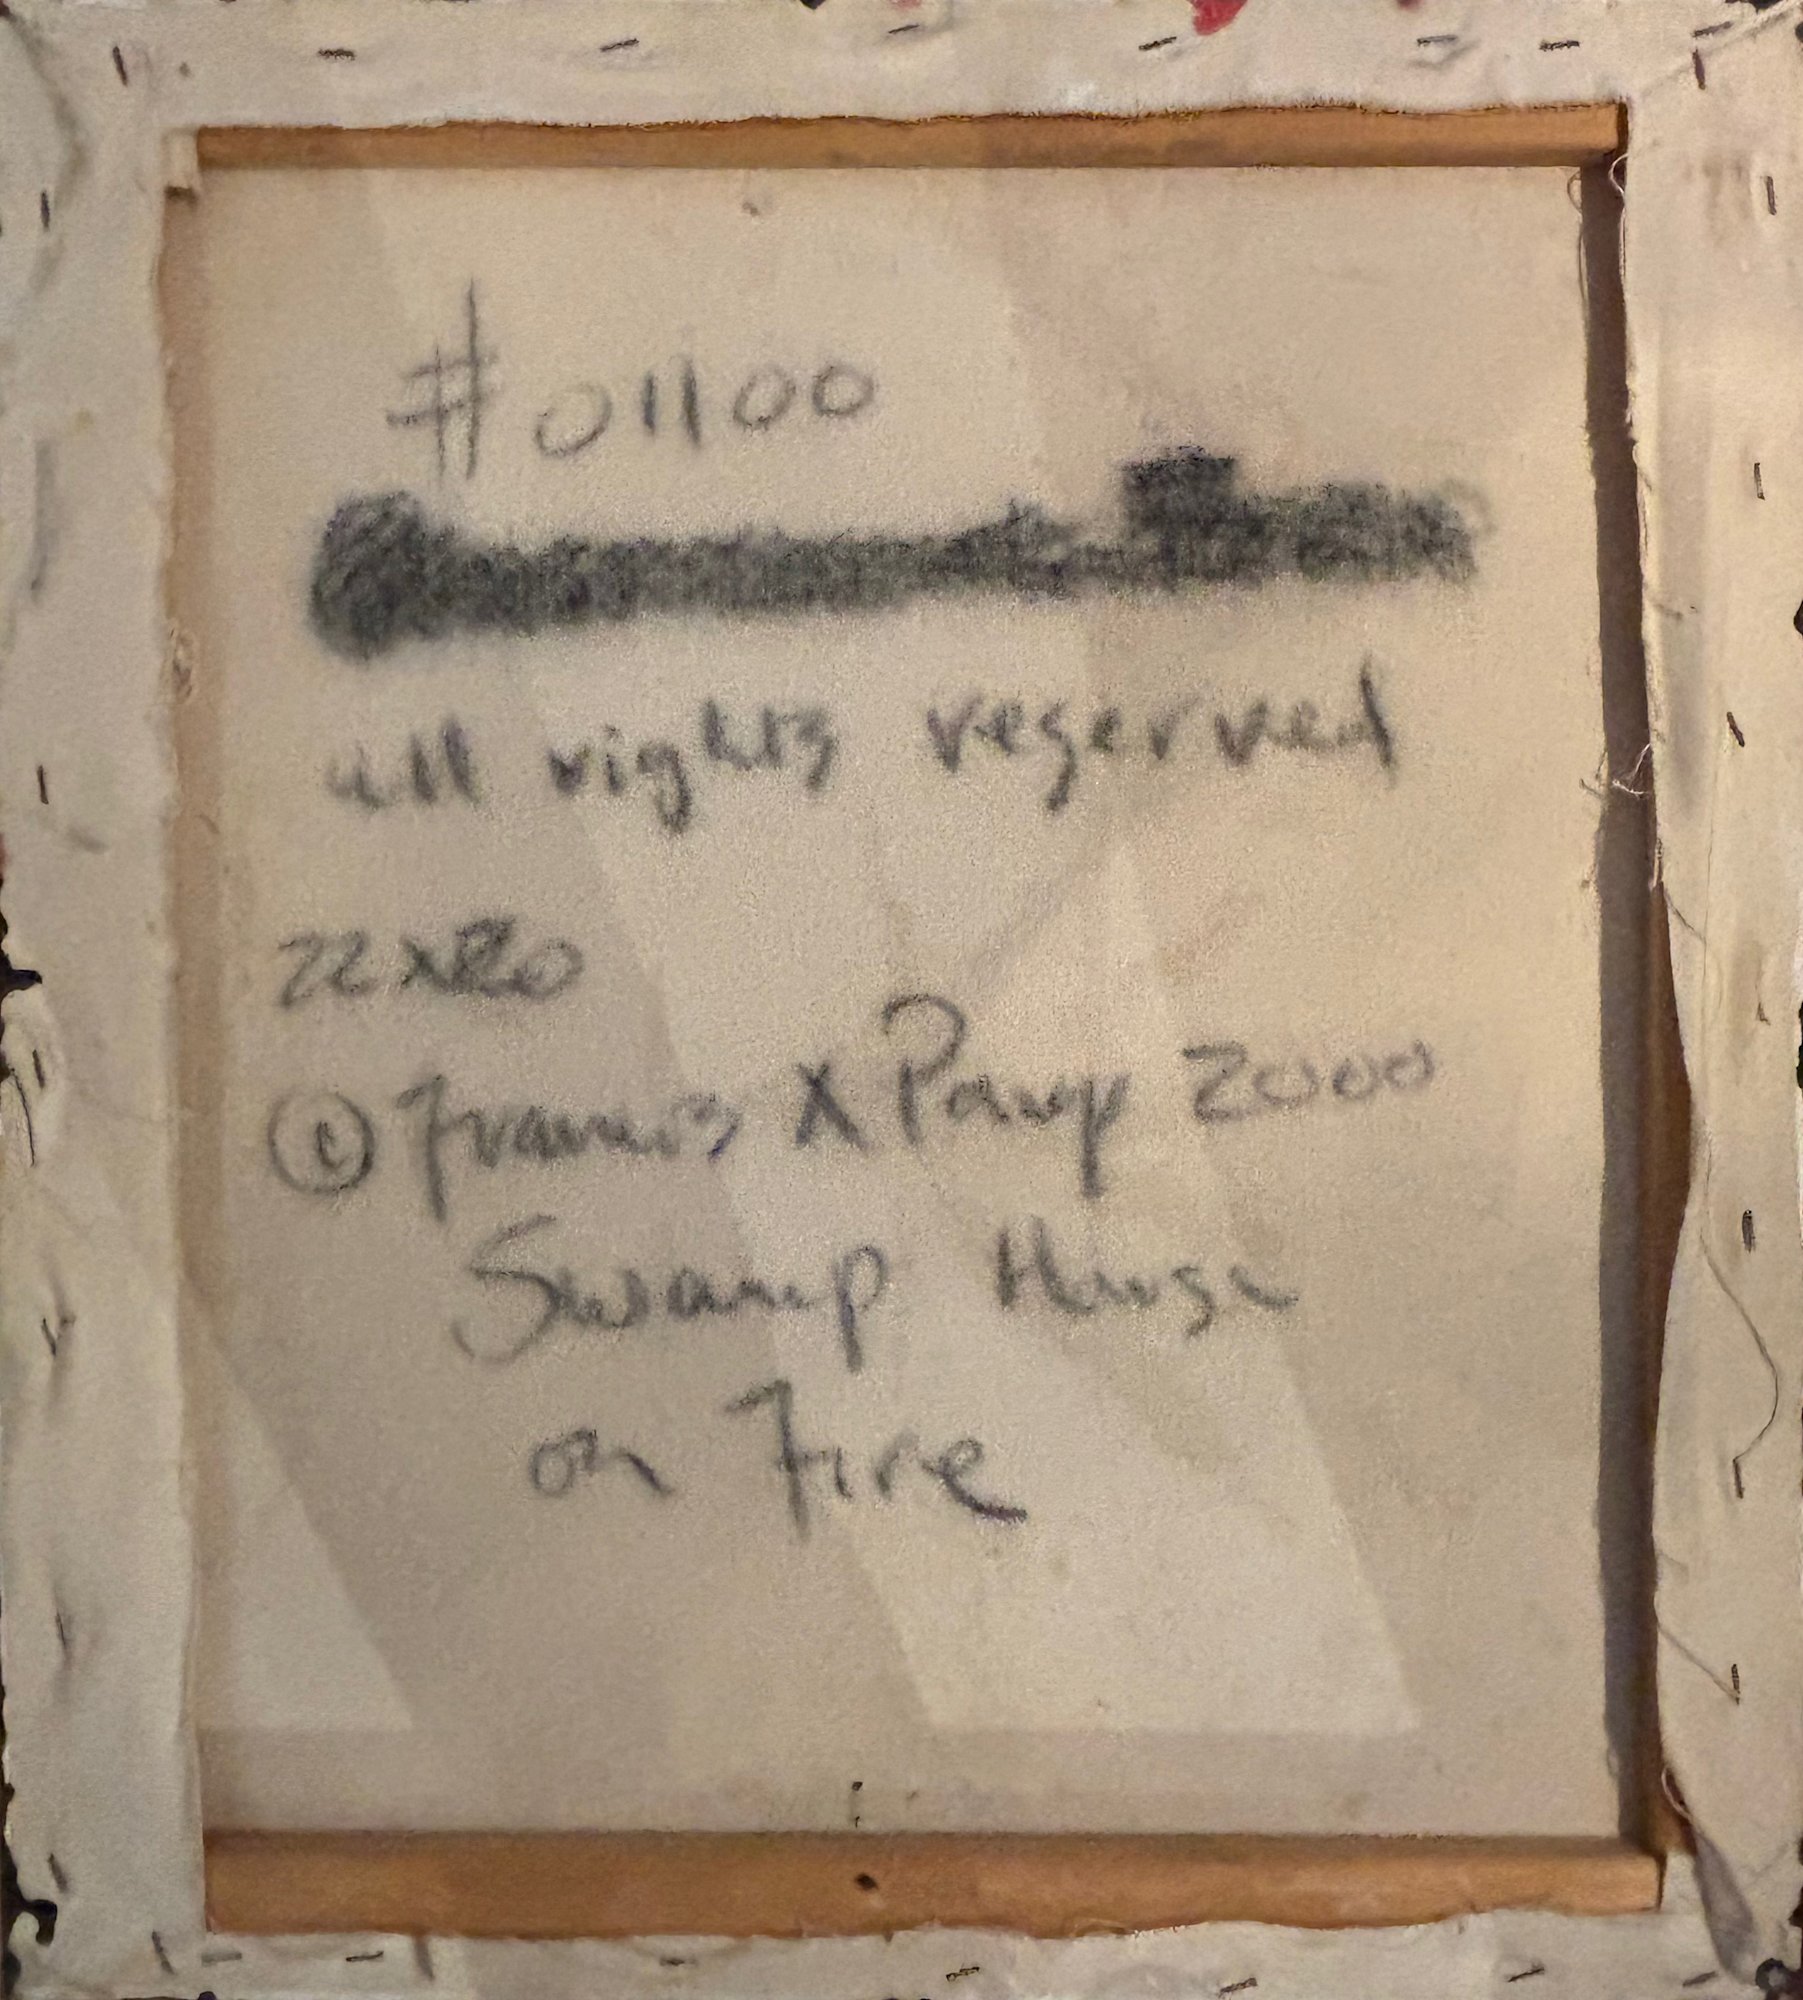 #01100
all rights reserved
22x20
© Francis X Pavy 2000
Swamp House
on Fire